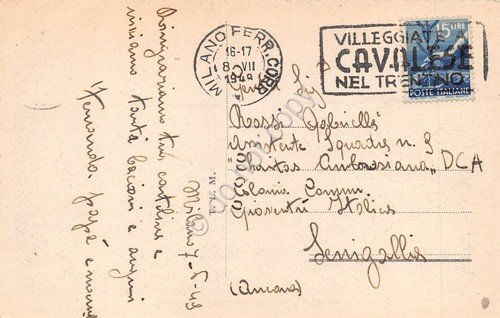 MILANO FERR. CORR.
16-17
8 VII
1949
VILLEGGIATE
CAVALESE
NEL TRENTINO
15 LIRE
POSTE ITALIANE
Ringraziamo tua cartolina e
inviamo tanti bacioni e auguri
Fernanda, papà e mamma
Milano 7-
Sig.
Rossi Gabriella
Assistente Squadra n. 3
"Charitas Ambrosiana" DCA
Colonia
Gioventù Italica
Senigallia
(Ancona)